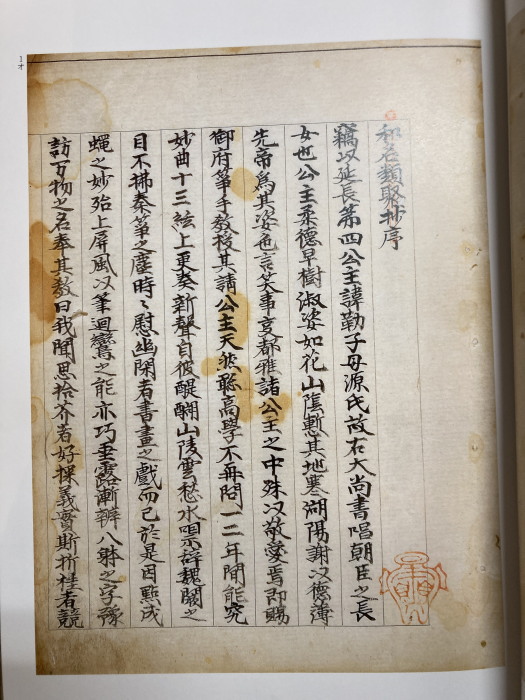 1オ
和名類聚抄序
竊以延長第四公主諱勤子母源氏故右大尚書唱朝臣之長
女也公主柔德早樹淑姿如花山陰慙其地寒湖陽謝以德薄
先帝爲其姿色言笑事々都雅諸公主之中殊以敬愛焉即賜
御府箏手教授其譜公主天然聡高學不再問一二年間能究
妙曲十三絃上更奏新聲自彼醍醐山陵雲愁水咽辞魏闕之
日不拂秦箏之塵時々慰幽閑者書畫之戲而已於是因點成
蠅之妙殆上屏風以筆迴鸞之能亦巧垂露漸辨八躰之字豫
訪万物之名奉其教曰我聞思拾芥者好探義實斯折桂者競